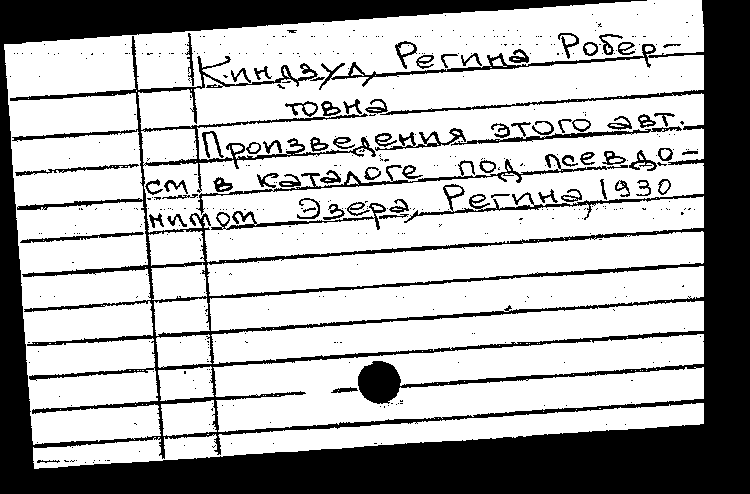 Киндзул, Регина Робер-
товна
Произведения этого авт.
см. в каталоге под псевдо-
нимом Эзера, Регина, 1930